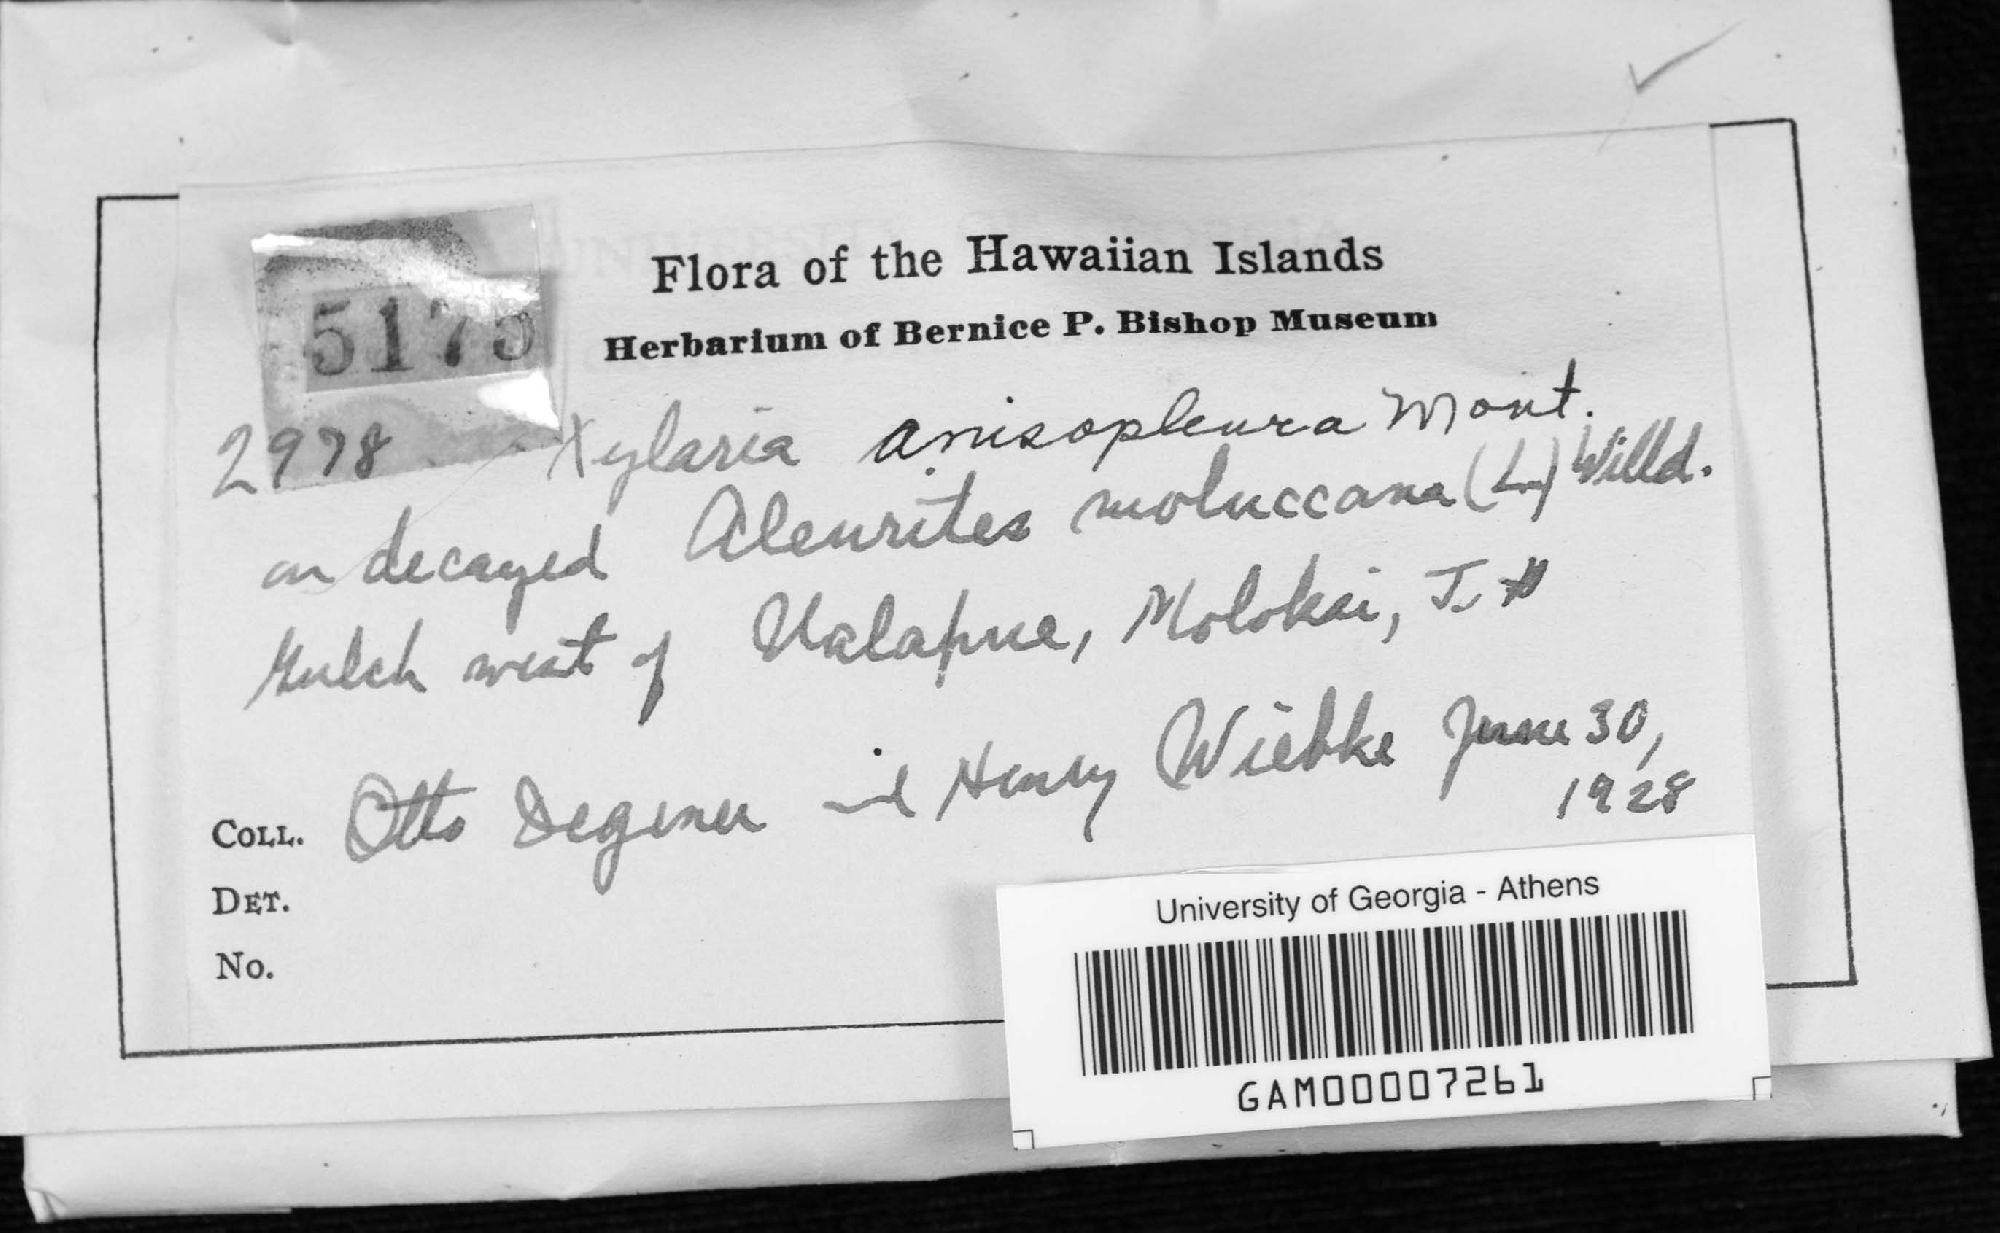 Flora of the Hawaiian Islands
Herbarium of Bernice P. Bishop Museum
5175
2978 Xylaria anisopleura Mont.
on decayed Aleurites moluccana (L.) Willd.
Gulch west of Ualapue, Molokai, T.H
COLL. Otto Degener and Henry Wiebke June 30,
1928
DET.
No.
University of Georgia - Athens
GAM00007261